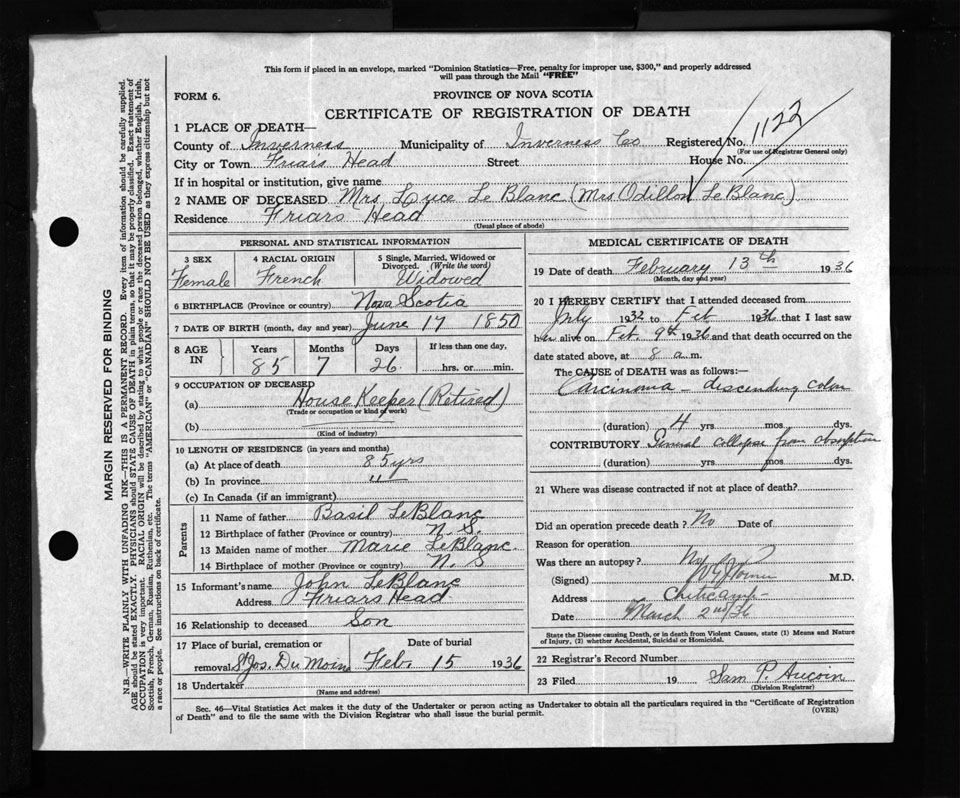 This form if placed in an envelope, marked "Dominion Statistics—Free, penalty for improper use, $300," and properly addressed
will pass through the Mail "FREE"
FORM 6.
PROVINCE OF NOVA SCOTIA
CERTIFICATE OF REGISTRATION OF DEATH
1 PLACE OF DEATH—
County of Inverness Municipality of Inverness Co Registered No. 1122
(For use of Registrar General only)
City or Town Friars Head Street House No.
If in hospital or institution, give name
2 NAME OF DECEASED Mrs Luce Le Blanc (Mrs Odillon LeBlanc)
Residence Friars Head
(Usual place of abode)
PERSONAL AND STATISTICAL INFORMATION
3 SEX Female
4 RACIAL ORIGIN French
5 Single, Married, Widowed or Divorced. (Write the word) Widowed
6 BIRTHPLACE (Province or country) Nova Scotia
7 DATE OF BIRTH (month, day and year) June 17 1850
8 AGE IN Years Months Days If less than one day,
85 7 26 hrs. or min.
9 OCCUPATION OF DECEASED
(a) House Keeper (Retired)
(Trade or occupation or kind of work)
(b)
(Kind of industry)
10 LENGTH OF RESIDENCE (in years and months)
(a) At place of death 85 yrs
(b) In province "
(c) In Canada (if an immigrant)
Parents
11 Name of father Basil LeBlanc
12 Birthplace of father (Province or country) N. S.
13 Maiden name of mother Marie LeBlanc
14 Birthplace of mother (Province or country) N. S
15 Informant's name John LeBlanc
Address Friars Head
16 Relationship to deceased Son
17 Place of burial, cremation or removal St Jos. Du Moine Date of burial Feb. 15 1936
18 Undertaker
(Name and address)
MEDICAL CERTIFICATE OF DEATH
19 Date of death February 13th 1936
(Month, day and year)
20 I HEREBY CERTIFY that I attended deceased from
July 1932 to Feb 1936 that I last saw
her alive on Feb. 9th 1936 and that death occurred on the
date stated above, at 8 a.m.
The CAUSE OF DEATH was as follows:
Carcinoma – descending colon
(duration) 4 yrs mos dys.
CONTRIBUTORY collapse from absorption
(duration) yrs mos dys.
21 Where was disease contracted if not at place of death?
Did an operation precede death? No Date of
Reason for operation
Was there an autopsy? No
(Signed) M.D.
Address Cheticamp
Date March 2nd/36
State the Disease causing Death, or in death from Violent Causes, state (1) Means and Nature
of Injury, (2) whether Accidental, Suicidal or Homicidal.
22 Registrar's Record Number
23 Filed 19 Sam P. Aucoin
(Division Registrar)
Sec. 46—Vital Statistics Act makes it the duty of the Undertaker or person acting as Undertaker to obtain all the particulars required in the "Certificate of Registration
of Death" and to file the same with the Division Registrar who shall issue the burial permit.
(OVER)
MARGIN RESERVED FOR BINDING
N.B.—WRITE PLAINLY WITH UNFADING INK—THIS IS A PERMANENT RECORD. Every item of information should be carefully supplied.
AGE should be stated EXACTLY. PHYSICIANS should STATE CAUSE OF DEATH in plain terms, so that it may be properly classified. Exact statement of
OCCUPATION is very important. RACIAL ORIGIN will be described by stating to what people or race the deceased person belonged, whether English, Irish,
Scottish, French, German, Russian, Ruthenian, etc. The terms "AMERICAN" or "CANADIAN" SHOULD NOT BE USED as they express citizenship but not
a race or people. See instructions on back of certificate.